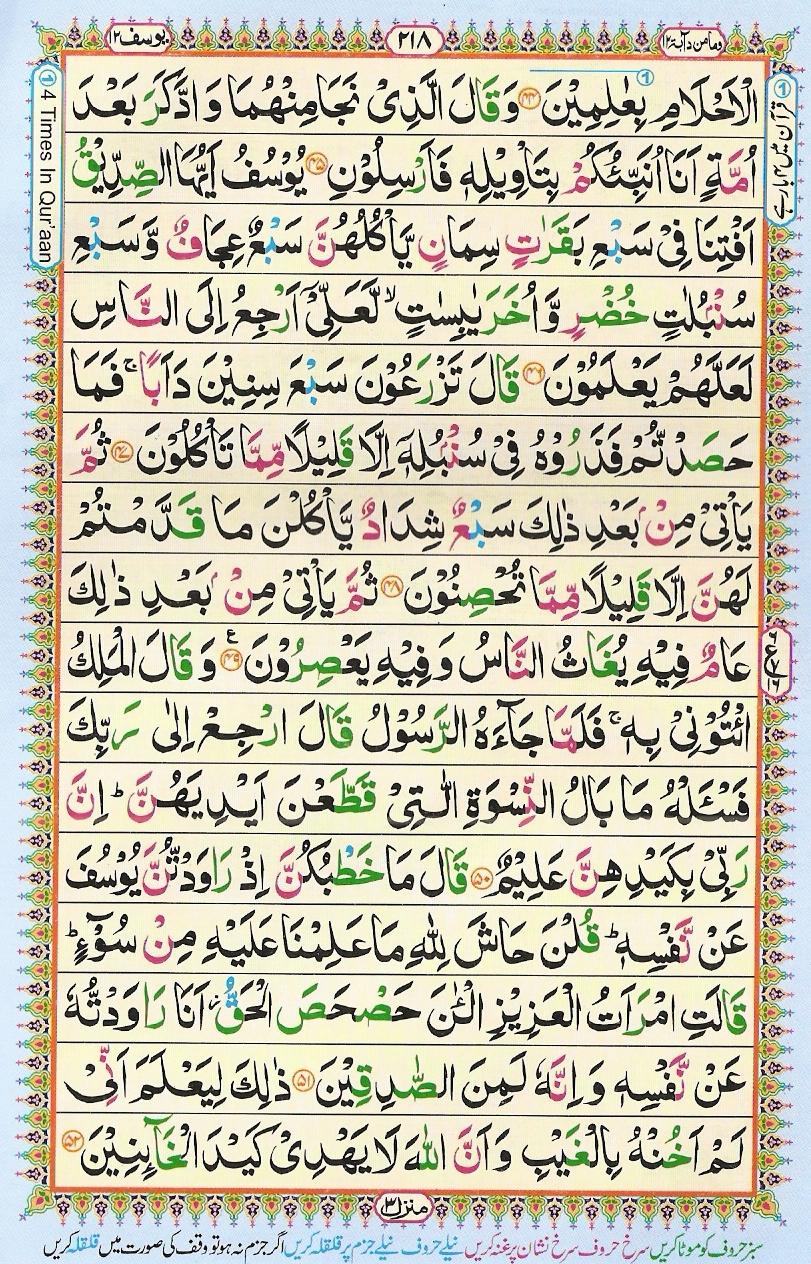 وما من دآبة ١٢
٢١٨
يوسف ١٢
الْاَحْلَامِ بِعٰلِمِيْنَ ﴿۴۴﴾ وَقَالَ الَّذِيْ نَجَا مِنْهُمَا وَ ادَّكَرَ بَعْدَ
اُمَّةٍ اَنَا اُنَبِّئُكُمْ بِتَاْوِيْلِهٖ فَاَرْسِلُوْنِ ﴿۴۵﴾ يُوْسُفُ اَيُّهَا الصِّدِّيْقُ
اَفْتِنَا فِيْ سَبْعِ بَقَرٰتٍ سِمَانٍ يَّاْكُلُهُنَّ سَبْعٌ عِجَافٌ وَّ سَبْعِ
سُنْۢبُلٰتٍ خُضْرٍ وَّ اُخَرَ يٰبِسٰتٍ ۙ لَّعَلِّيْۤ اَرْجِعُ اِلَى النَّاسِ
لَعَلَّهُمْ يَعْلَمُوْنَ ﴿۴۶﴾ قَالَ تَزْرَعُوْنَ سَبْعَ سِنِيْنَ دَاَبًا ۚ فَمَا
حَصَدْتُّمْ فَذَرُوْهُ فِيْ سُنْۢبُلِهٖۤ اِلَّا قَلِيْلًا مِّمَّا تَاْكُلُوْنَ ﴿۴۷﴾ ثُمَّ
يَاْتِيْ مِنْۢ بَعْدِ ذٰلِكَ سَبْعٌ شِدَادٌ يَّاْكُلْنَ مَا قَدَّمْتُمْ
لَهُنَّ اِلَّا قَلِيْلًا مِّمَّا تُحْصِنُوْنَ ﴿۴۸﴾ ثُمَّ يَاْتِيْ مِنْۢ بَعْدِ ذٰلِكَ
عَامٌ فِيْهِ يُغَاثُ النَّاسُ وَ فِيْهِ يَعْصِرُوْنَ ﴿۴۹﴾ ع وَ قَالَ الْمَلِكُ
ائْتُوْنِيْ بِهٖ ۚ فَلَمَّا جَآءَهُ الرَّسُوْلُ قَالَ ارْجِعْ اِلٰى رَبِّكَ
فَسْـَٔلْهُ مَا بَالُ النِّسْوَةِ الّٰتِيْ قَطَّعْنَ اَيْدِيَهُنَّ ؕ اِنَّ
رَبِّيْ بِكَيْدِهِنَّ عَلِيْمٌ ﴿۵۰﴾ قَالَ مَا خَطْبُكُنَّ اِذْ رَاوَدْتُّنَّ يُوْسُفَ
عَنْ نَّفْسِهٖ ؕ قُلْنَ حَاشَ لِلّٰهِ مَا عَلِمْنَا عَلَيْهِ مِنْ سُوْٓءٍ ؕ
قَالَتِ امْرَاَتُ الْعَزِيْزِ الْـٰٔنَ حَصْحَصَ الْحَقُّ ۫ اَنَا رَاوَدْتُّهٗ
عَنْ نَّفْسِهٖ وَ اِنَّهٗ لَمِنَ الصّٰدِقِيْنَ ﴿۵۱﴾ ذٰلِكَ لِيَعْلَمَ اَنِّيْ
لَمْ اَخُنْهُ بِالْغَيْبِ وَ اَنَّ اللّٰهَ لَا يَهْدِيْ كَيْدَ الْخَآئِنِيْنَ ﴿۵۲﴾
منزل ٣
سبز حروف کو موٹا کریں سرخ حروف سرخ نشان پر غنہ کریں نیلے حروف نیلے جزم پر قلقلہ کریں اگر جزم نہ ہو تو وقف کی صورت میں قلقلہ کریں
① قرآن میں ۴ بار ہے
① 4 Times In Qur'aan